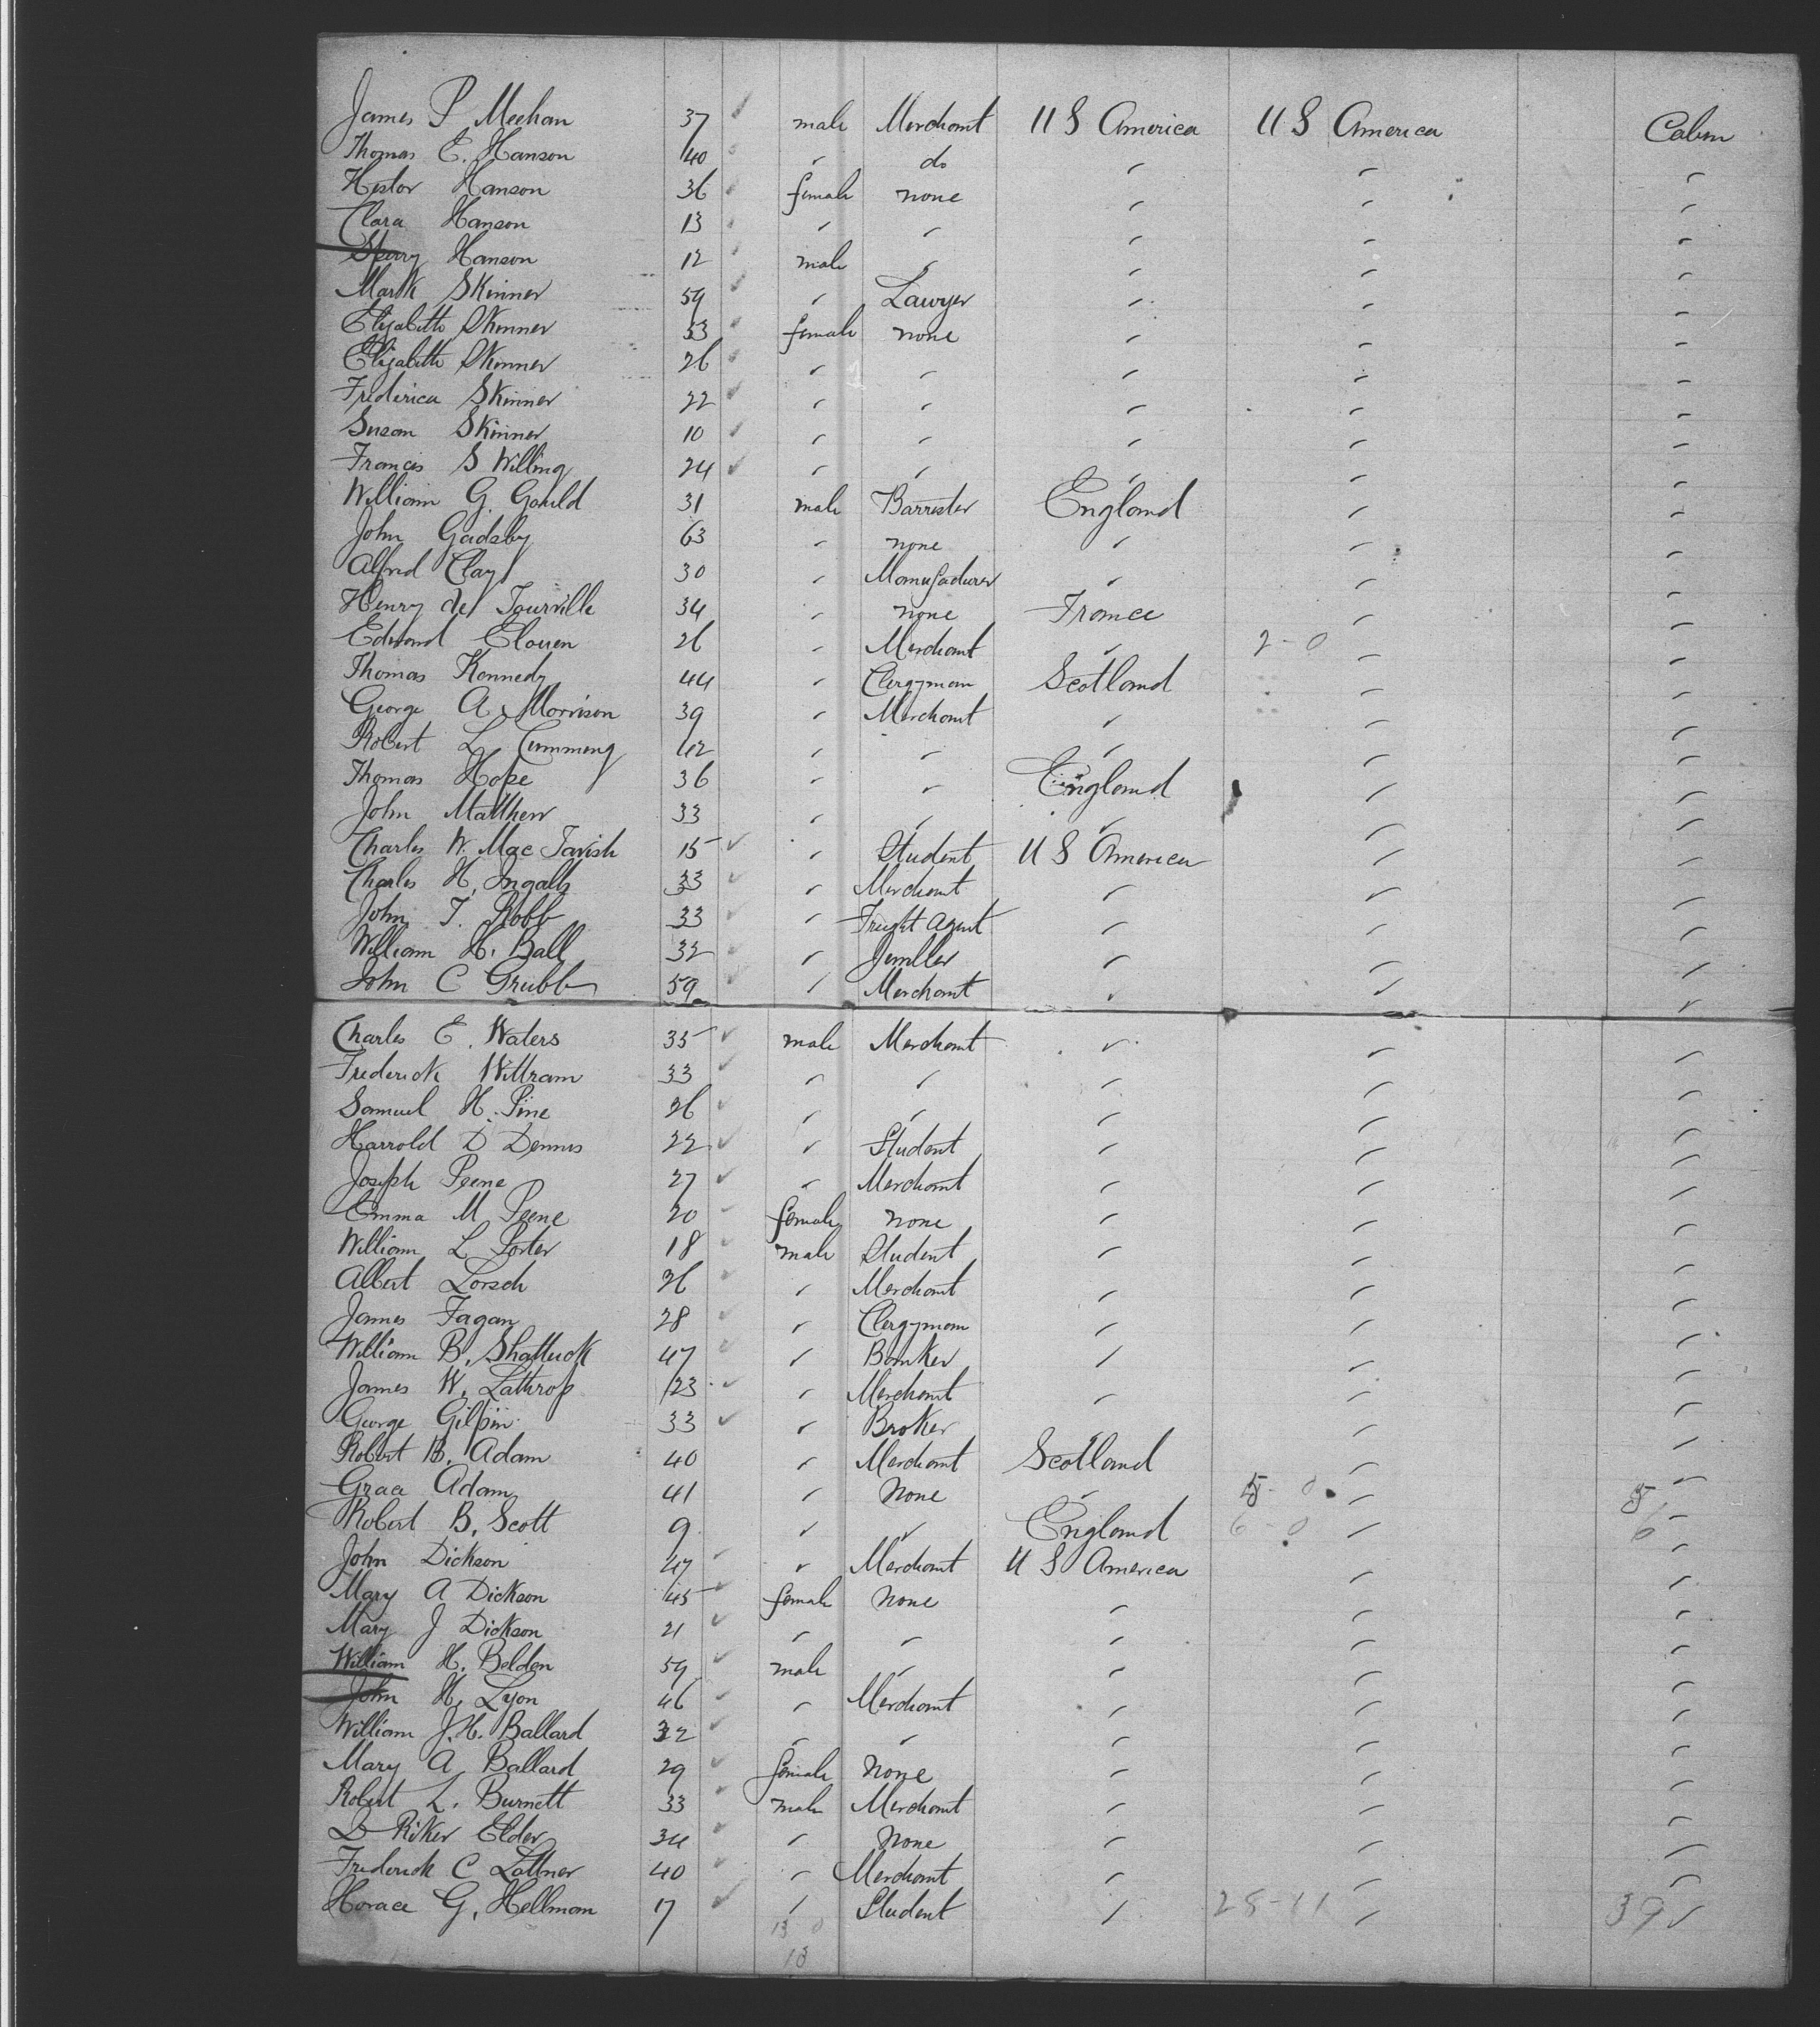 James P Meehan 37 ✓ male Merchant U S America U S America Cabin
Thomas E. Hanson 40 ✓ " do " " "
Hestor Hanson 36 ✓ female none " " "
Clara Hanson 13 ✓ " " " " "
Sperry Hanson 12 ✓ male " " " "
Mark Skinner 59 ✓ " Lawyer " " "
Elizabeth Skinner 53 ✓ female none " " "
Elizabeth Skinner 26 ✓ " " " " "
Frederica Skinner 22 ✓ " " " " "
Susan Skinner 10 ✓ " " " " "
Francis S Willing 24 ✓ " " " " "
William G. Gould 31 male Barrester England " "
John Gadsby 63 " none " " "
Alfred Clay 30 " Manufacturer " " "
Henry de Tourville 34 " none France " "
Edmond Elouen 26 " Merchant " 2-0 " "
Thomas Kennedy 44 " Clergyman Scotland " "
George A. Morrison 39 " Merchant " " "
Robert L. Cumming 42 " " " " "
Thomas Hope 36 " " England " "
John Matthew 33 " " " " "
Charles W. Mac Tavish 15 ✓ " Student U S America " "
Charles H. Ingalls 33 ✓ " Merchant " " "
John T. Robb 33 ✓ " Freight Agent " " "
William H. Ball 32 ✓ " Jeweller " " "
John C Grubb 59 ✓ " Merchant " " "
Charles E. Waters 35 ✓ male Merchant " " "
Frederick Wittram 33 ✓ " " " " "
Samuel H. Pine 26 ✓ " " " " "
Harrold D Dennis 22 ✓ " Student " " "
Joseph Peene 27 ✓ " Merchant " " "
Emma M Peene 20 ✓ female none " " "
William L Porter 18 ✓ male Student " " "
Albert Lorsch 26 ✓ " Merchant " " "
James Fagan 28 ✓ " Clergyman " " "
William B. Shattuck 47 ✓ " Banker " " "
James W. Lathrop 23 ✓ " Merchant " " "
George Gilpin 33 ✓ " Broker " " "
Robert B. Adam 40 " Merchant Scotland " "
Grace Adam 41 " None " 5-0 " 5 "
Robert B. Scott 9 " " England 6-0 " 6 "
John Dickson 47 ✓ " Merchant U S America " "
Mary A Dickson 45 ✓ female None " " "
Mary J Dickson 21 ✓ " " " " "
William H. Belden 59 ✓ male " " " "
John H. Lyon 46 ✓ " Merchant " " "
William J. H. Ballard 32 ✓ " " " " "
Mary A Ballard 29 ✓ female None " " "
Robert L. Burnett 33 ✓ male Merchant " " "
D Riker Elder 34 ✓ " None " " "
Frederick C Lattner 40 ✓ " Merchant " " "
Horace G. Hellman 17 ✓ " Student " 28-11 " 39 ✓
13 0
13